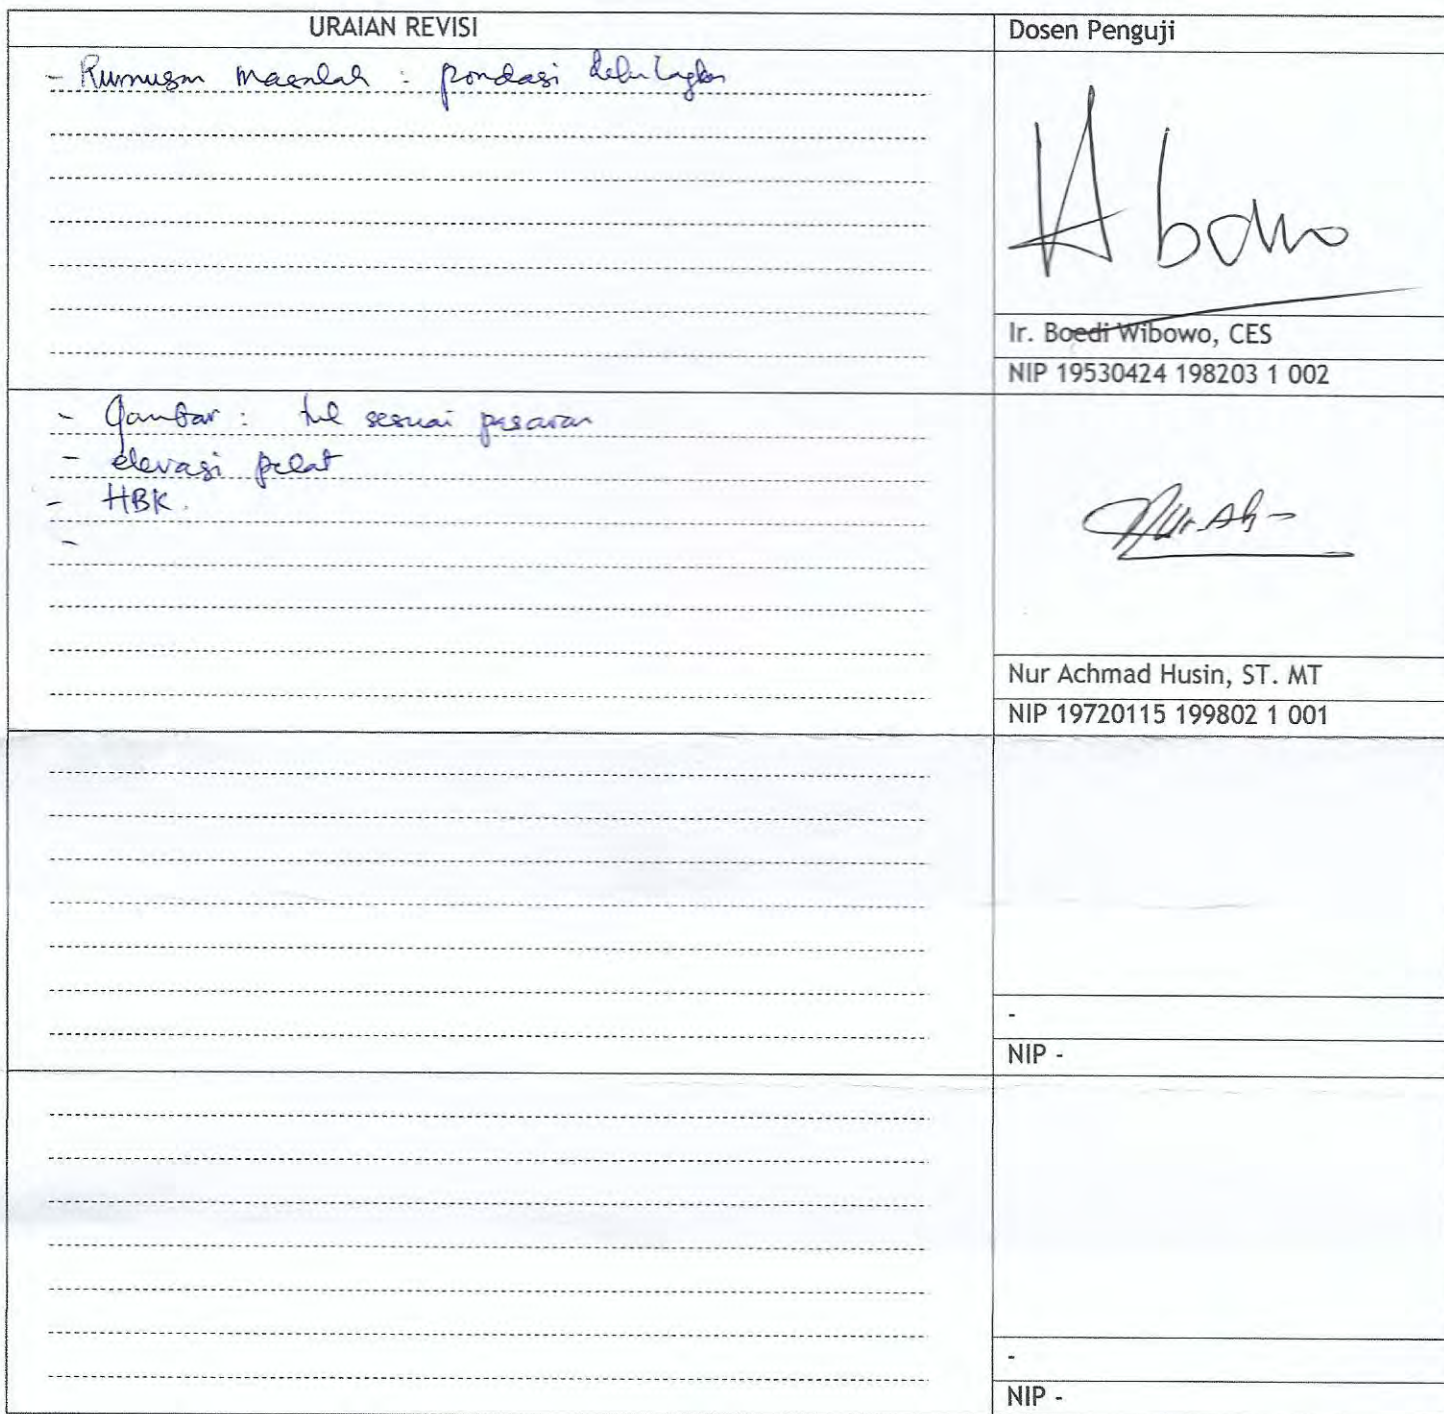 URAIAN REVISI
Dosen Penguji
- Rumusan masalah : pondasi
Ir. Boedi Wibowo, CES
NIP 19530424 198203 1 002
- Gambar : tul sesuai pasaran
- elevasi pelat
- HBK.
-
Nur Achmad Husin, ST. MT
NIP 19720115 199802 1 001
-
NIP -
-
NIP -